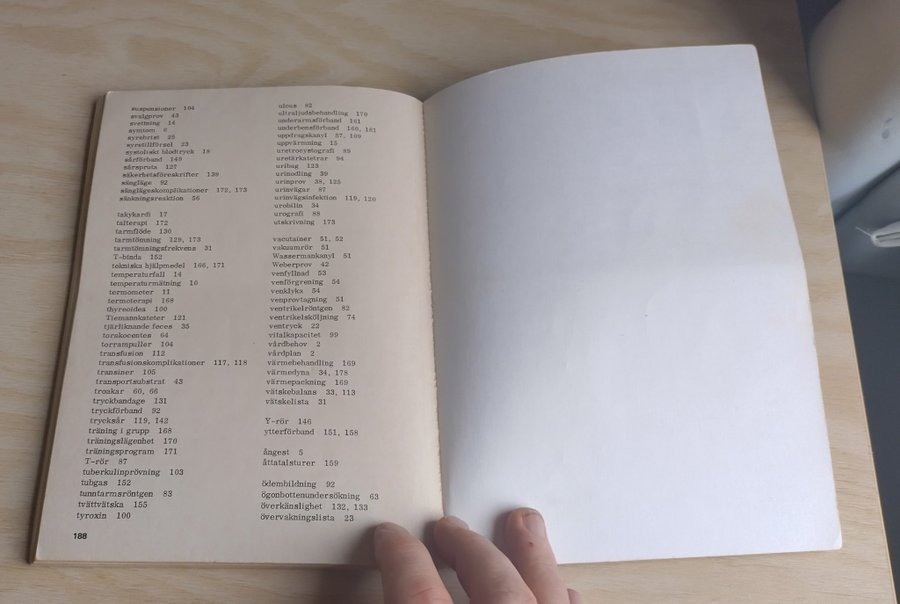 suspensioner 104
svalgprov 43
svettning 14
symtom 6
syrebrist 25
syretillförsel 23
systoliskt blodtryck 18
sårförband 149
sårspruta 127
säkerhetsföreskrifter 139
sängläge 92
sänglägeskomplikationer 172, 173
sänkningsreaktion 56
takykardi 17
talterapi 172
tarmflöde 130
tarmtömning 129, 173
tarmtömningsfrekvens 31
T-binda 152
tekniska hjälpmedel 166, 171
temperaturfall 14
temperaturmätning 10
termometer 11
termoterapi 168
thyreoidea 100
Tiemannkateter 121
tjärliknande feces 35
torakocentes 64
torrampuller 104
transfusion 112
transfusionskomplikationer 117, 118
transiner 105
transportsubstrat 43
troakar 60, 66
tryckbandage 131
tryckförband 92
trycksår 119, 142
träning i grupp 168
träningslägenhet 170
träningsprogram 171
T-rör 87
tuberkulinprövning 103
tubgas 152
tunntarmsröntgen 83
tvättvätska 155
tyroxin 100
188
ulcus 82
ultraljudsbehandling 170
underarmsförband 161
underbensförband 160, 161
uppdragskanyl 57, 109
uppvärmning 15
uretrocystografi 89
uretärkatetrar 94
uribag 123
urinodling 39
urinprov 38, 125
urinvägar 87
urinvägsinfektion 119, 120
urobilin 34
urografi 88
utskrivning 173
vacutainer 51, 52
vakuumrör 51
Wassermankanyl 51
Weberprov 42
venfyllnad 53
venförgrening 54
venklyka 54
venprovtagning 51
ventrikelröntgen 82
ventrikelsköljning 74
ventryck 22
vitalkapacitet 99
vårdbehov 2
vårdplan 2
värmebehandling 169
värmedyna 34, 178
värmepackning 169
vätskebalans 33, 113
vätskelista 31
Y-rör 146
ytterförband 151, 158
ångest 5
åttatalsturer 159
ödembildning 92
ögonbottenundersökning 63
överkänslighet 132, 133
övervakningslista 23